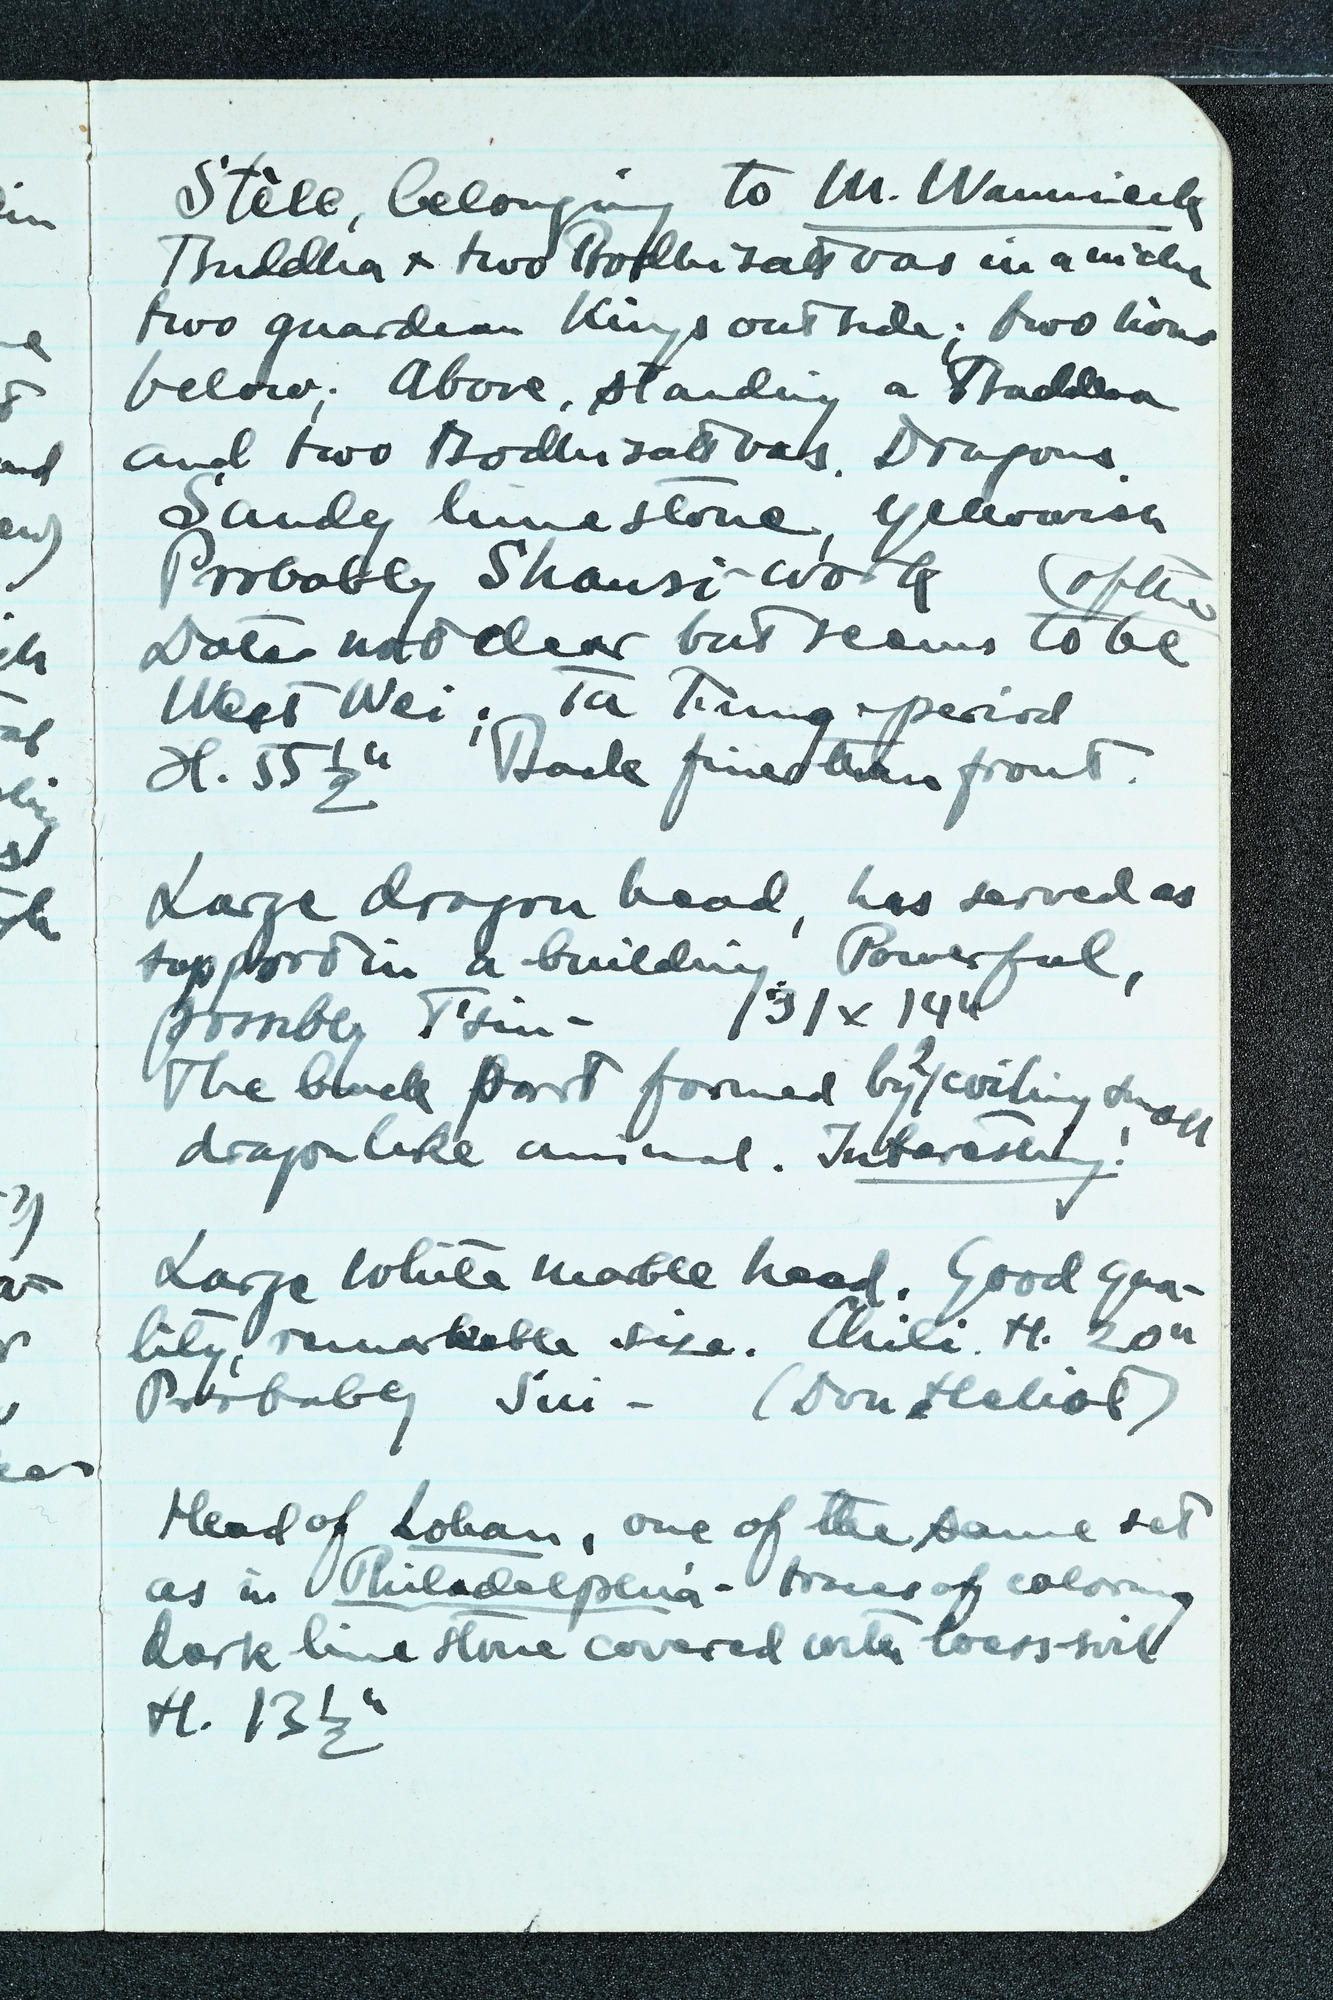 Stèle, belonging to M. Wannieck
Buddha + two Bodhisattvas in a niche
two guardian Kings outside; two lions
below; Above, standing a Buddha
and two Bodhisattvas. Dragons.
Sandy limestone, yellowish
Probably Shansi-work (of the
Date not clear but seems to be
West Wei; Ta T'ung-period
H. 55 1/2" Back finer than front.
Large dragon head, has served as
support in a building. Powerful,
possibly T'sin- 31 x 14"
The back part formed by 2 coiling small
dragonlike animal. Interesting!
Large white marble head. Good qua-
lity, remarkable size. Chili. H. 20"
Probably Sui - (Don
Head of Lohan, one of the same set
as in Philadelphia - traces of coloring
dark limestone covered with loess-soil
H. 13 1/2"